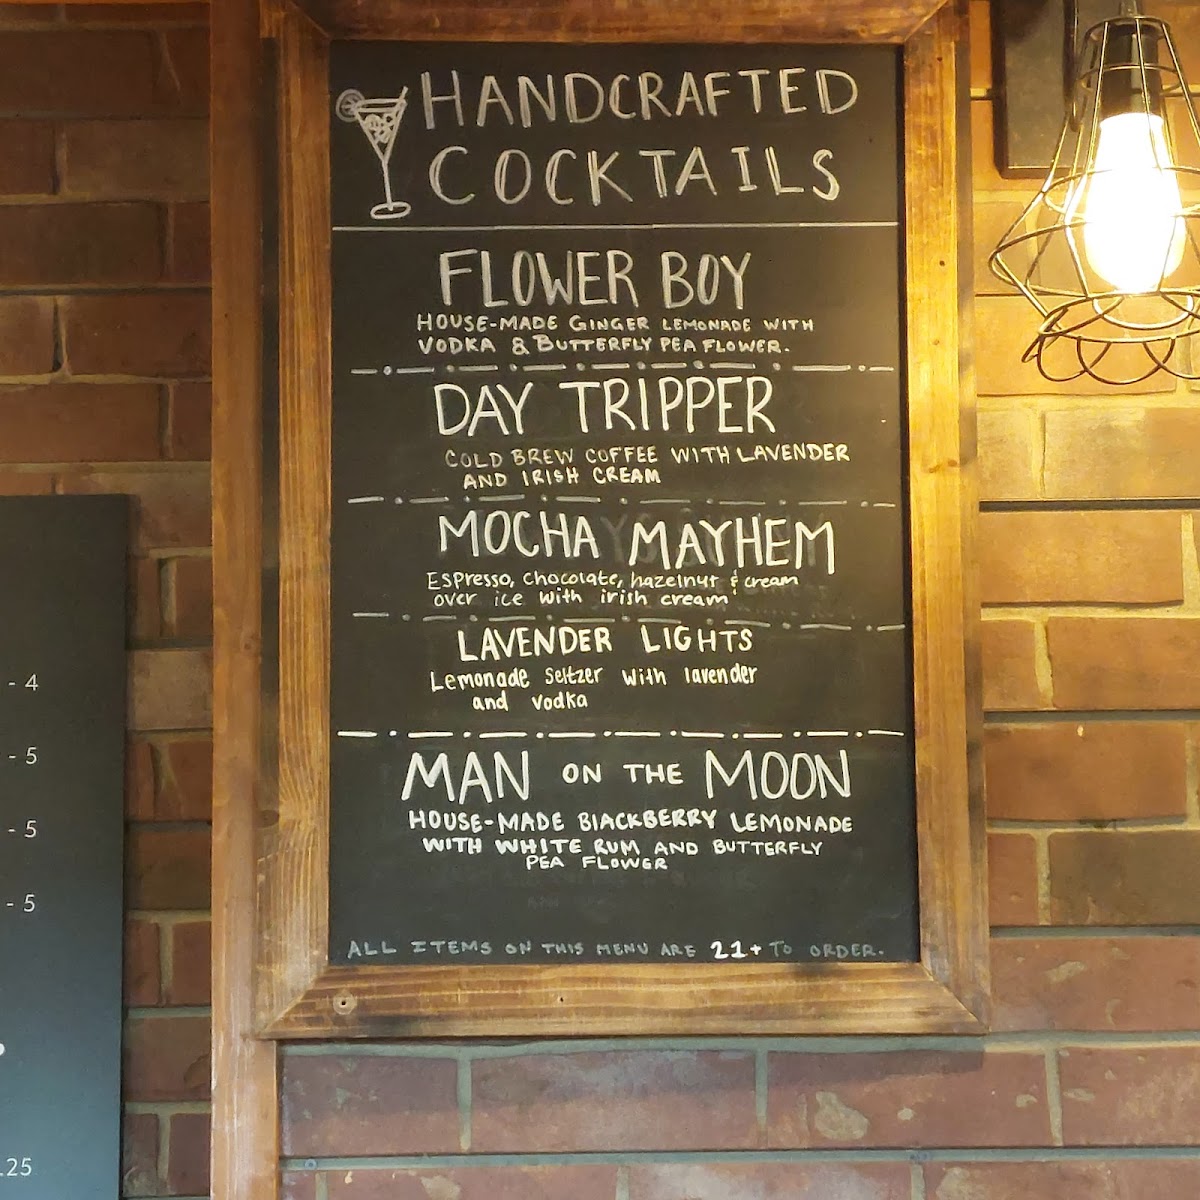 HANDCRAFTED
COCKTAILS
FLOWER BOY
HOUSE-MADE GINGER LEMONADE WITH
VODKA & BUTTERFLY PEA FLOWER.
DAY TRIPPER
COLD BREW COFFEE WITH LAVENDER
AND IRISH CREAM
MOCHA MAYHEM
Espresso, chocolate, hazelnut & cream
over ice with irish cream
LAVENDER LIGHTS
Lemonade Seltzer with lavender
and vodka
MAN ON THE MOON
HOUSE-MADE BlACKBERRY LEMONADE
WITH WHITE RUM AND BUTTERFLY
PEA FLOWER
ALL ITEMS ON THIS MENU ARE 21+ TO ORDER.
- 4
- 5
- 5
- 5
.25